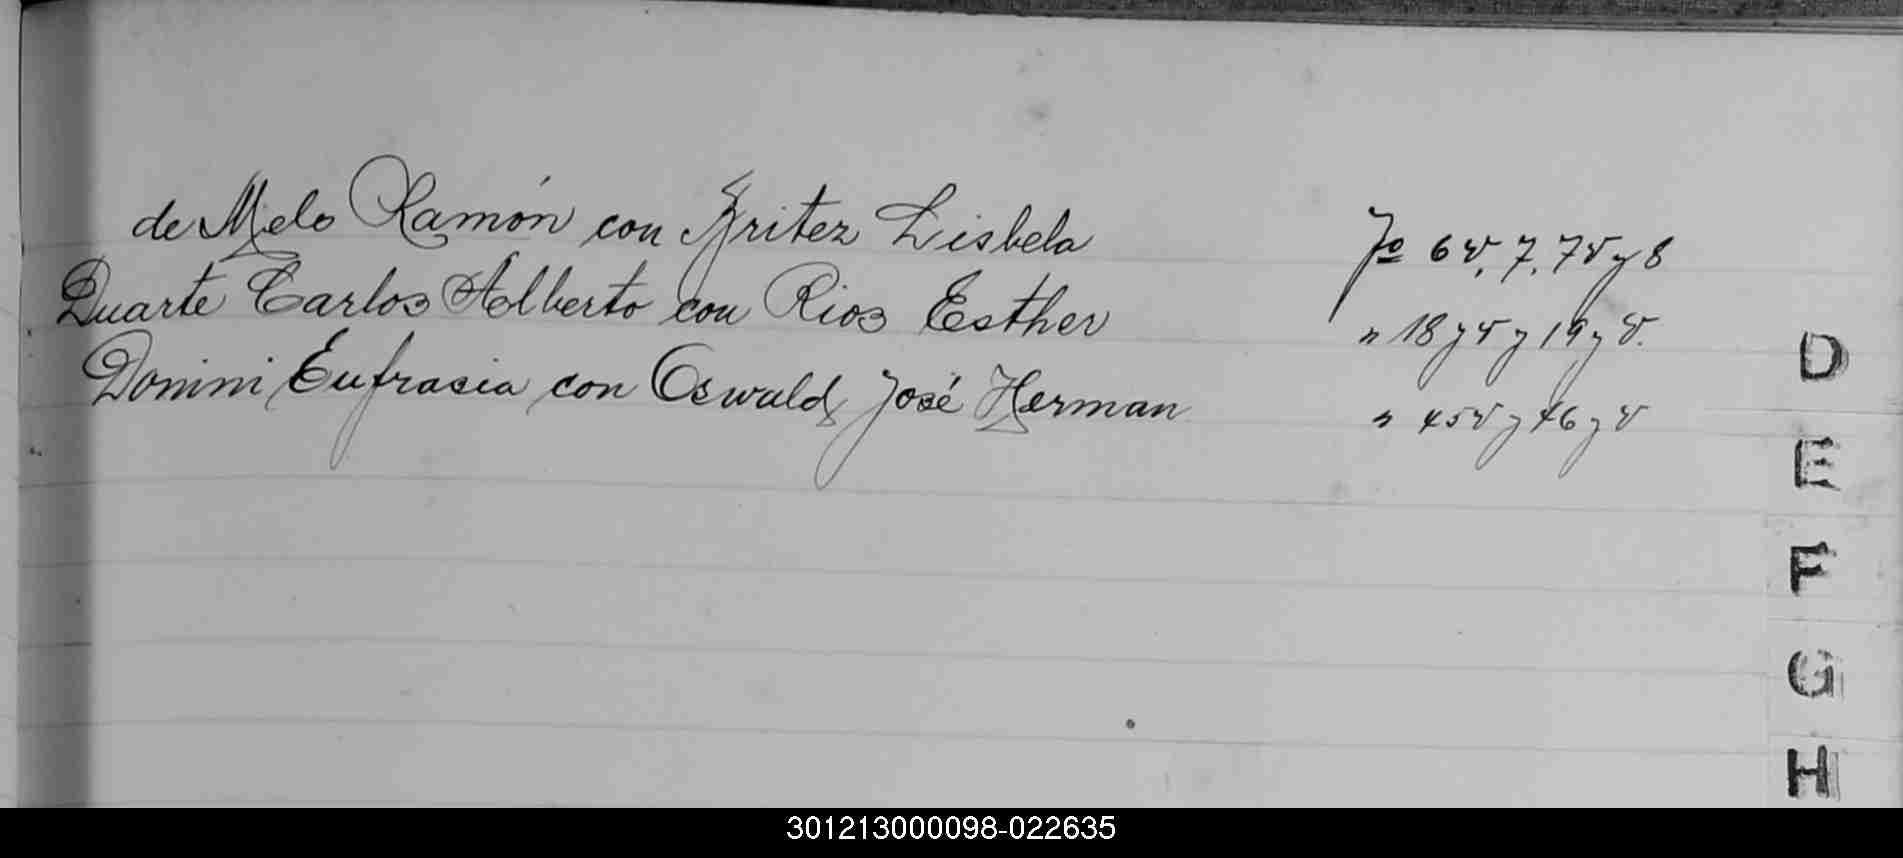 de Melo Ramón con Britez Lisbela fº 6v, 7, 7v y 8
Duarte Carlos Alberto con Rios Esther " 18 y v y 19 y v.
Donini Eufrasia con Oswald José Herman " 45v y 46 y v
D
E
F
G
H
301213000098-022635